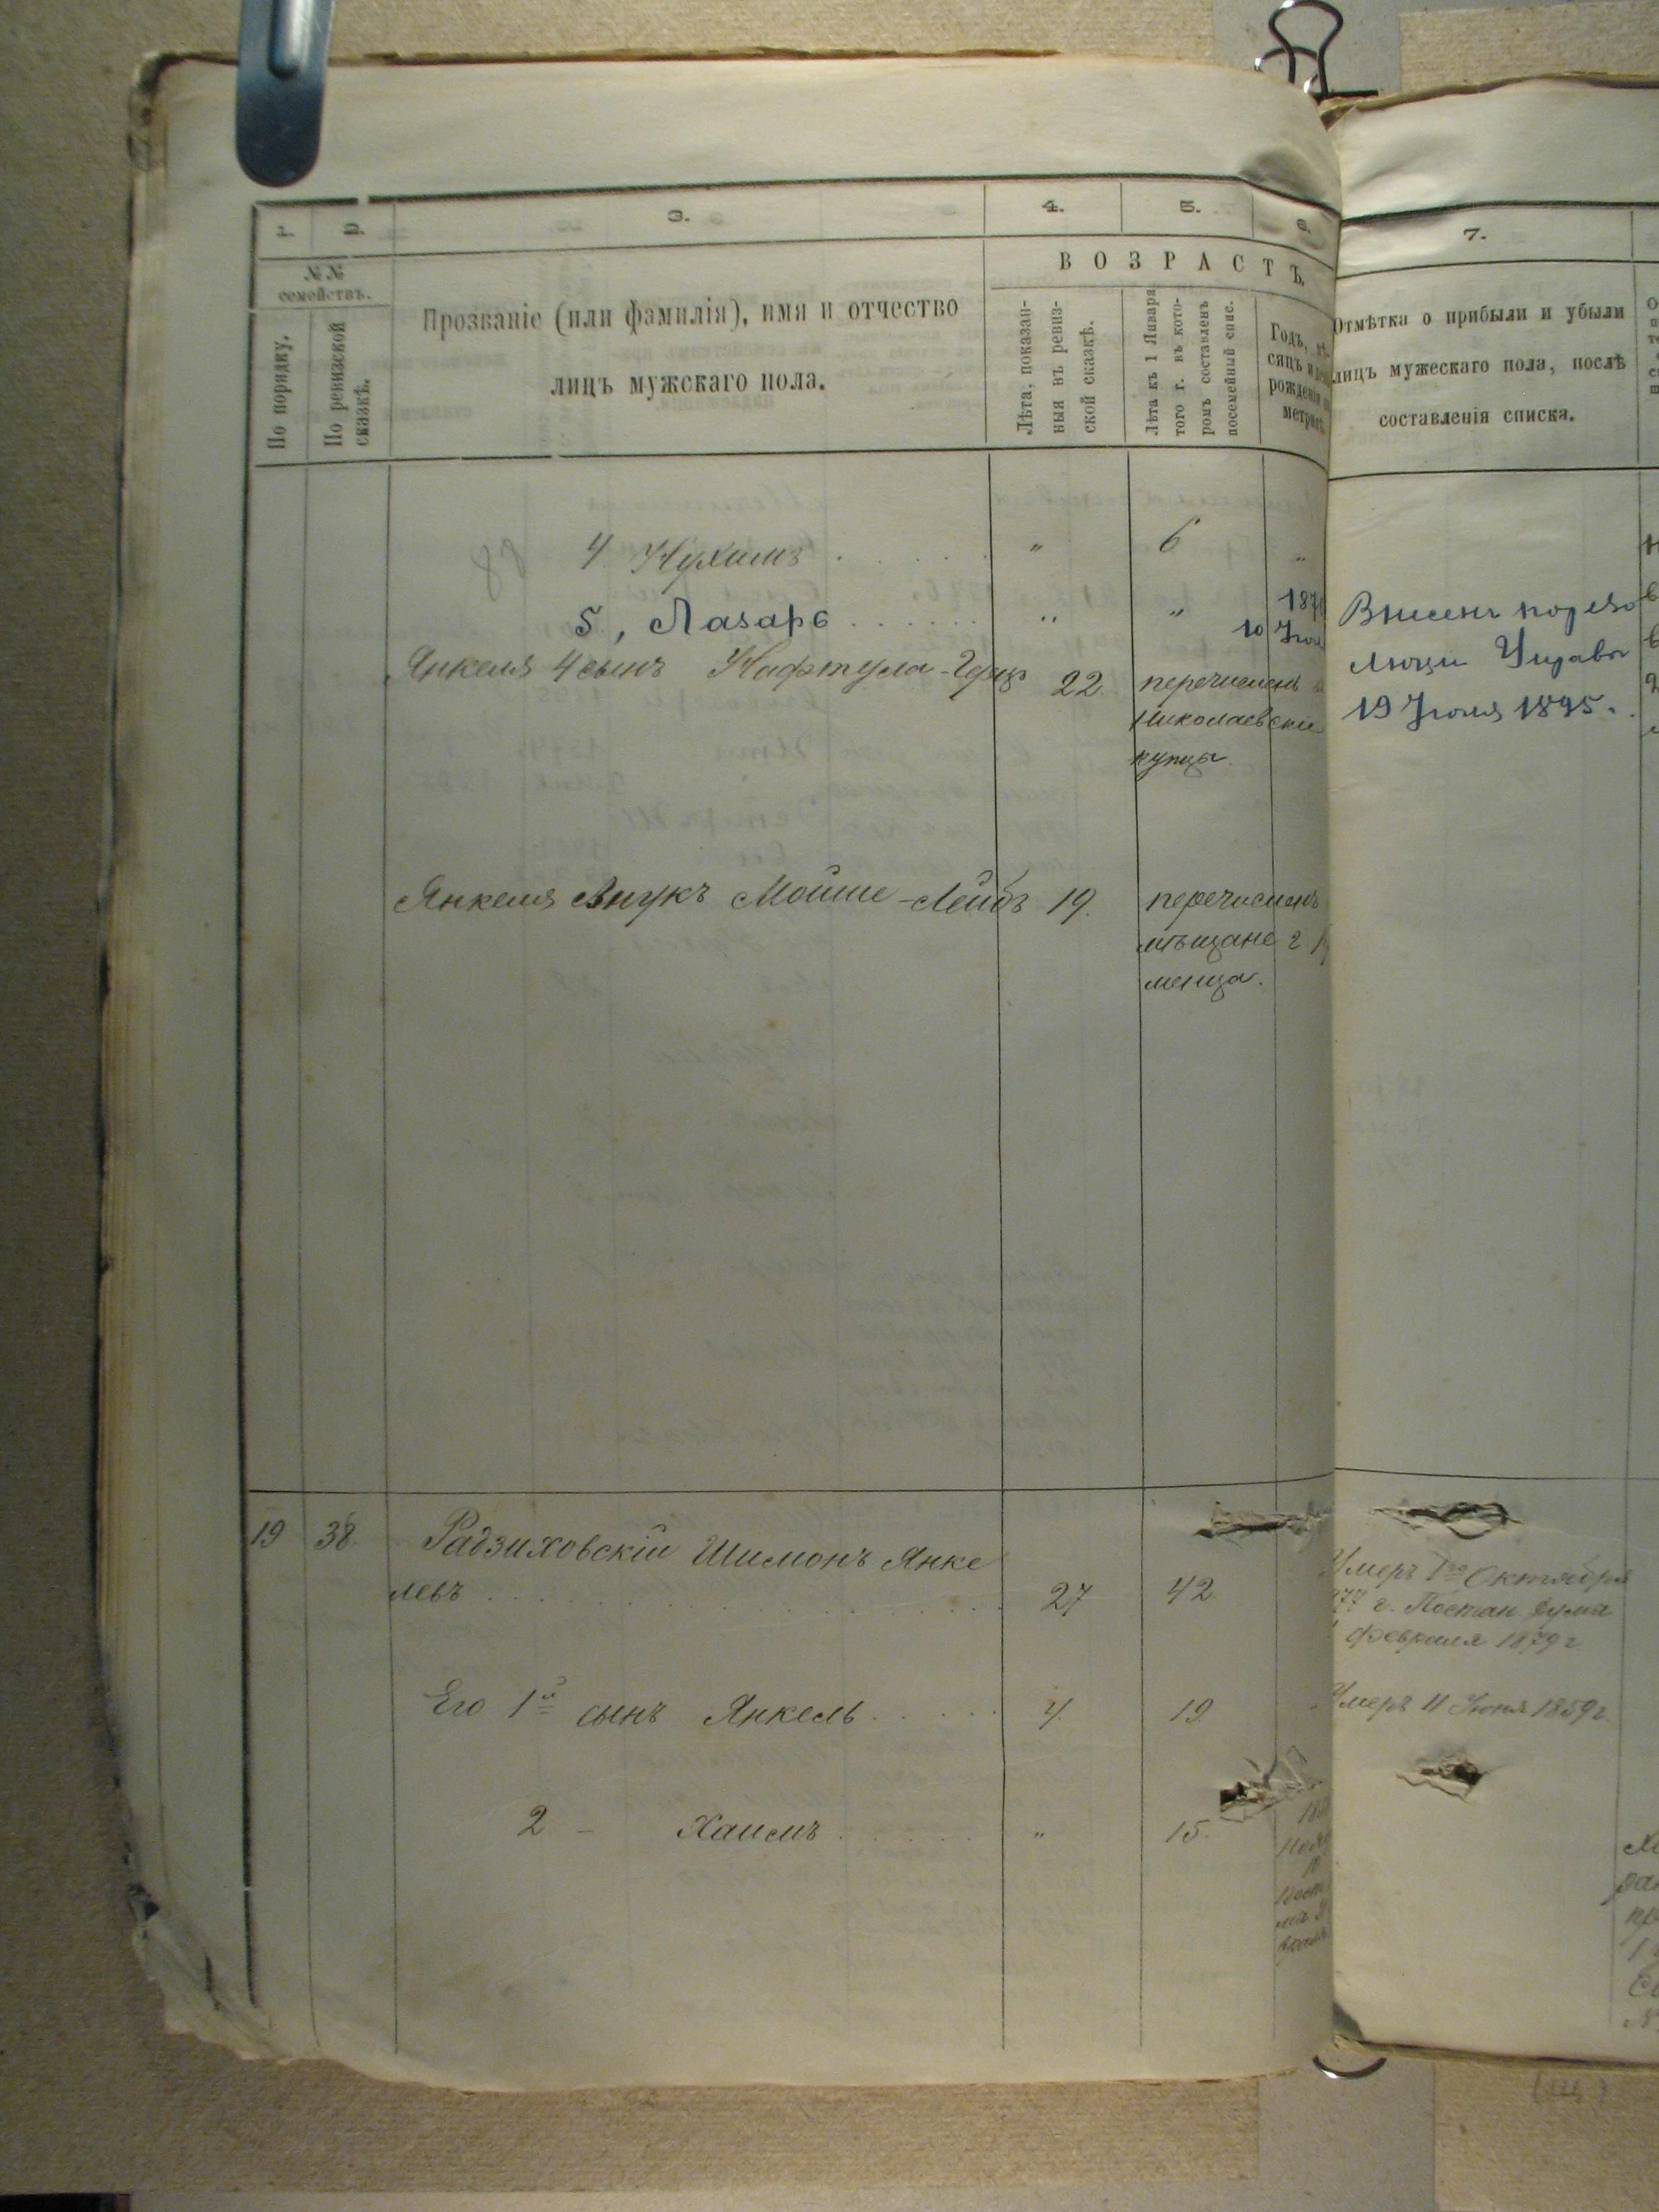 1.
2.
3.
4.
5.
6.
7.
№ №
семействъ.
По порядку.
По ревизской
сказкѣ.
Прозваніе (или фамилія), имя и отчество
лицъ мужскаго пола.
ВОЗРАСТЪ.
Лѣта, показан-
ныя въ ревиз-
ской сказкѣ.
Лѣта къ 1 Января
того г. въ кото-
ромъ составленъ
посемейный спис.
Годъ, мѣ-
сяцъ и
рожденія
Отмѣтка о прибыли и убыли
лицъ мужескаго пола, послѣ
составленія списка.
4 Нухимъ . . . . . „ 6 „
5, Лазарь . . . . . . „ „ 187
10
Внесенъ по
Управы
19 Іюля 1895.
Янкеля 4 сынъ Нафтула-Герцъ 22 перечисленъ
Николаевскіе
купцы
Янкеля Внукъ Мойше-Лейбъ 19. перечисленъ
мѣщане г.
менца.
19 38 Радзиховскій Шимонъ Янке
левъ . . . . . . 27 42
Умеръ 1го Октября
77 г. Постан Думы
Февраля 1879 г
Его 1й сынъ Янкель . . . . . 4. 19.
Умеръ 11 Іюня 1859 г.
2 - Хаимъ . . . . . „ 15.